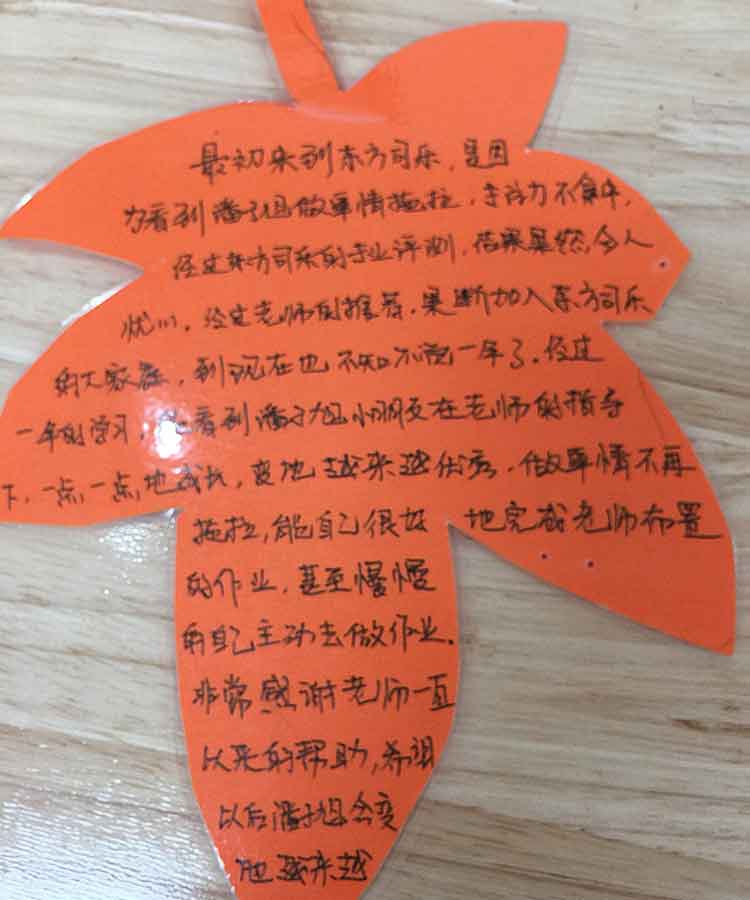 最初来到东方司乐，是因
为看到潘子旭做事情拖拉，专注力不集中，
经过东方司乐的专业评测，结果果然令人
忧心，经过老师的推荐，果断加入东方司乐
的大家庭，到现在也不知不觉一年了。经过
一年的学习，看到潘子旭小朋友在老师的指导
下，一点，一点，地成长，变地越来越优秀。做事情不再
拖拉，能自己很好地完成老师布置
的作业，甚至慢慢
的自己主动去做作业。
非常感谢老师一直
以来的帮助，希望
以后潘子旭会变
地越来越